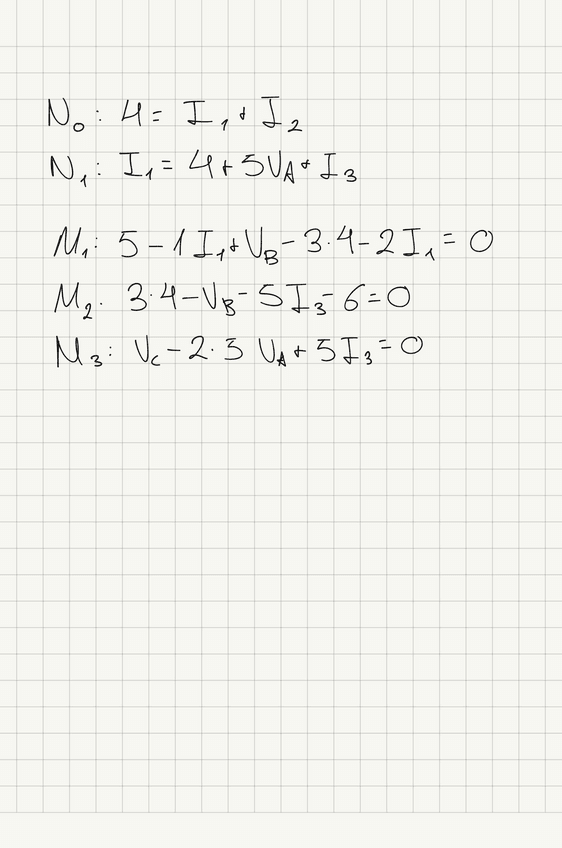 N₀: 4 = I₁ + I₂
N₁: I₁ = 4 + 5V_A + I₃
M₁: 5 - 1I₁ + V_B - 3·4 - 2I₁ = 0
M₂. 3·4 - V_B - 5I₃ - 6 = 0
M₃: V_C - 2·5 V_A + 5I₃ = 0